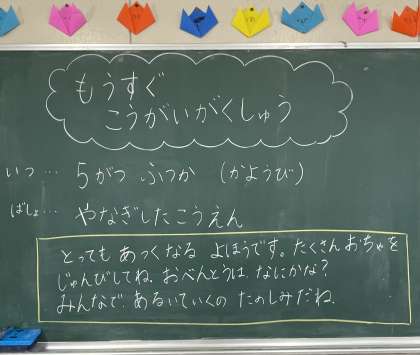 もうすぐ
こうがいがくしゅう
いつ… 5がつ ふつか (かようび)
ばしょ… やなぎしたこうえん
とっても あつくなる よほうです。たくさん おちゃを
じゅんびしてね。おべんとうは、なにかな?
みんなで あるいていくの たのしみだね。